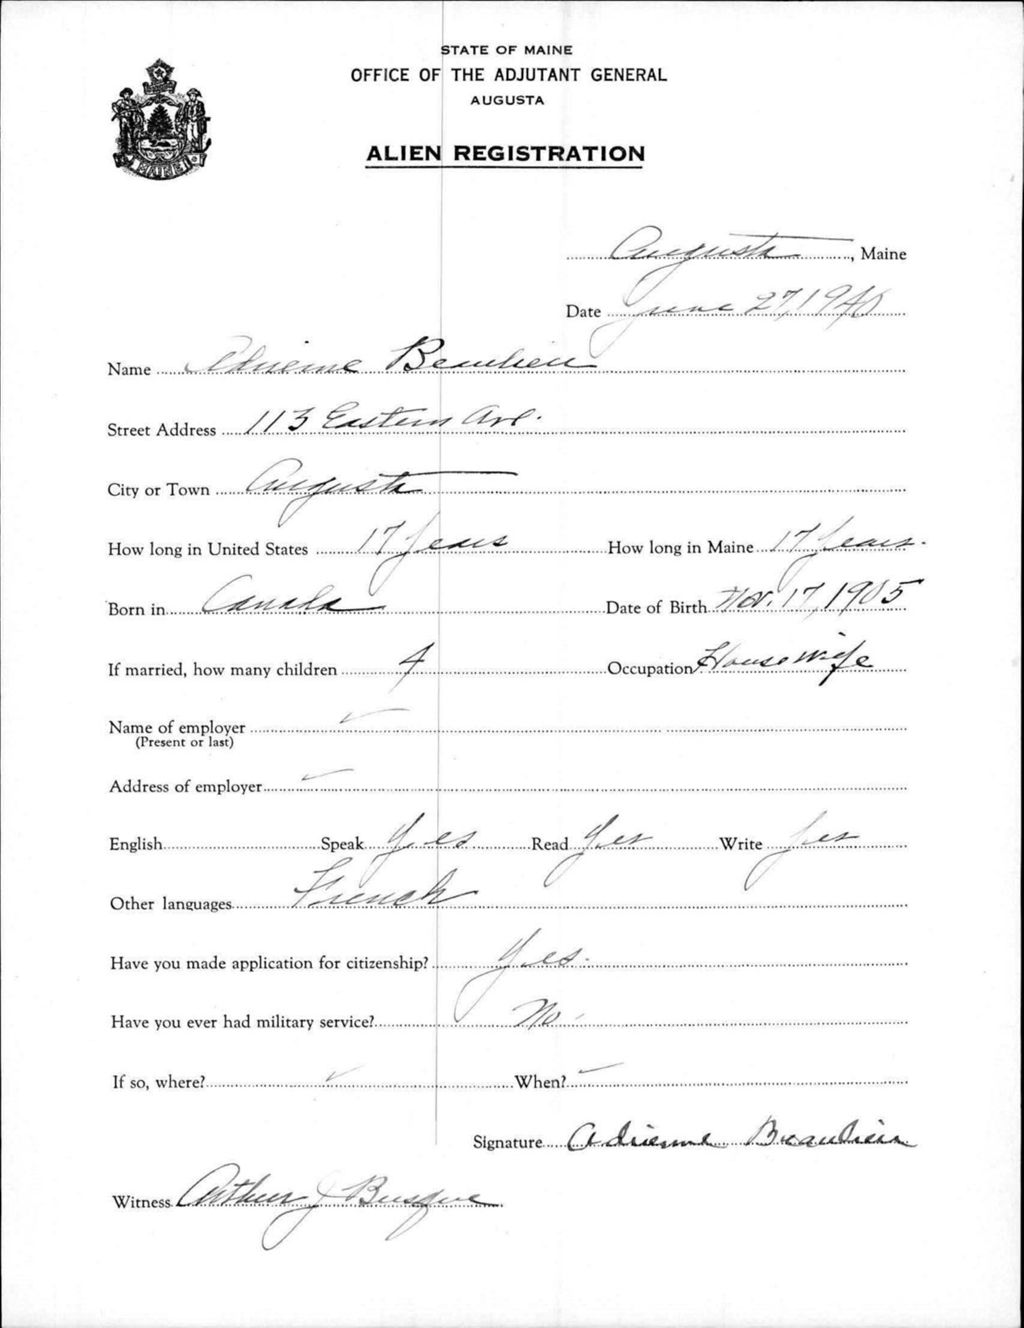 STATE OF MAINE
OFFICE OF THE ADJUTANT GENERAL
AUGUSTA
ALIEN REGISTRATION
MAINE
Augusta, Maine
Date June 27, 1940
Name Adrienne Beaulieu
Street Address 113 Eastern Ave.
City or Town Augusta
How long in United States 17 years How long in Maine 17 years.
Born in Canada Date of Birth Nov. 17, 1905
If married, how many children 4 Occupation Housewife
Name of employer ✓
(Present or last)
Address of employer ✓
English Speak Yes Read Yes Write Yes
Other languages French
Have you made application for citizenship? Yes.
Have you ever had military service? No
If so, where? ✓ When? ✓
Signature Adrienne Beaulieu
Witness Arthur J Busque